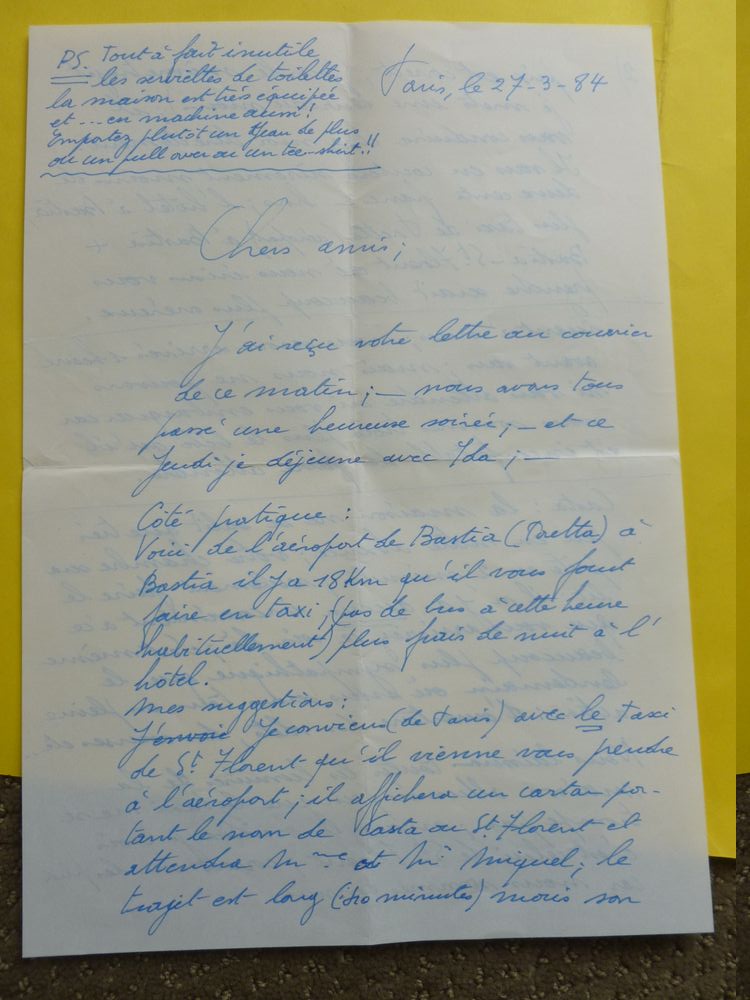 PS. Tout à fait inutile
les serviettes de toilettes
la maison est très équipée
et ... en machine aussi!
Emportez plutôt un Jean de plus
ou un pull over ou un tee-shirt!!
Paris, le 27-3-84
Chers amis;
J'ai reçu votre lettre au courrier
de ce matin; — nous avons tous
passé une heureuse soirée; — et ce
Jeudi je déjeune avec Ida; —
Côté pratique:
Voici de l'aéroport de Bastia (Poretta) à
Bastia il y a 18 Km qu'il vous faut
faire en taxi; (pas de bus à cette heure
habituellement) plus frais de nuit à l'
hôtel.
Mes suggestions:
J'envoie Je conviens (de Paris) avec le Taxi
de St Florent qu'il vienne vous prendre
à l'aéroport; il affichera un carton por-
tant le nom de Casta ou St Florent et
attendra Mme et Mr Miquel; le
trajet est long ( minutes) mais son